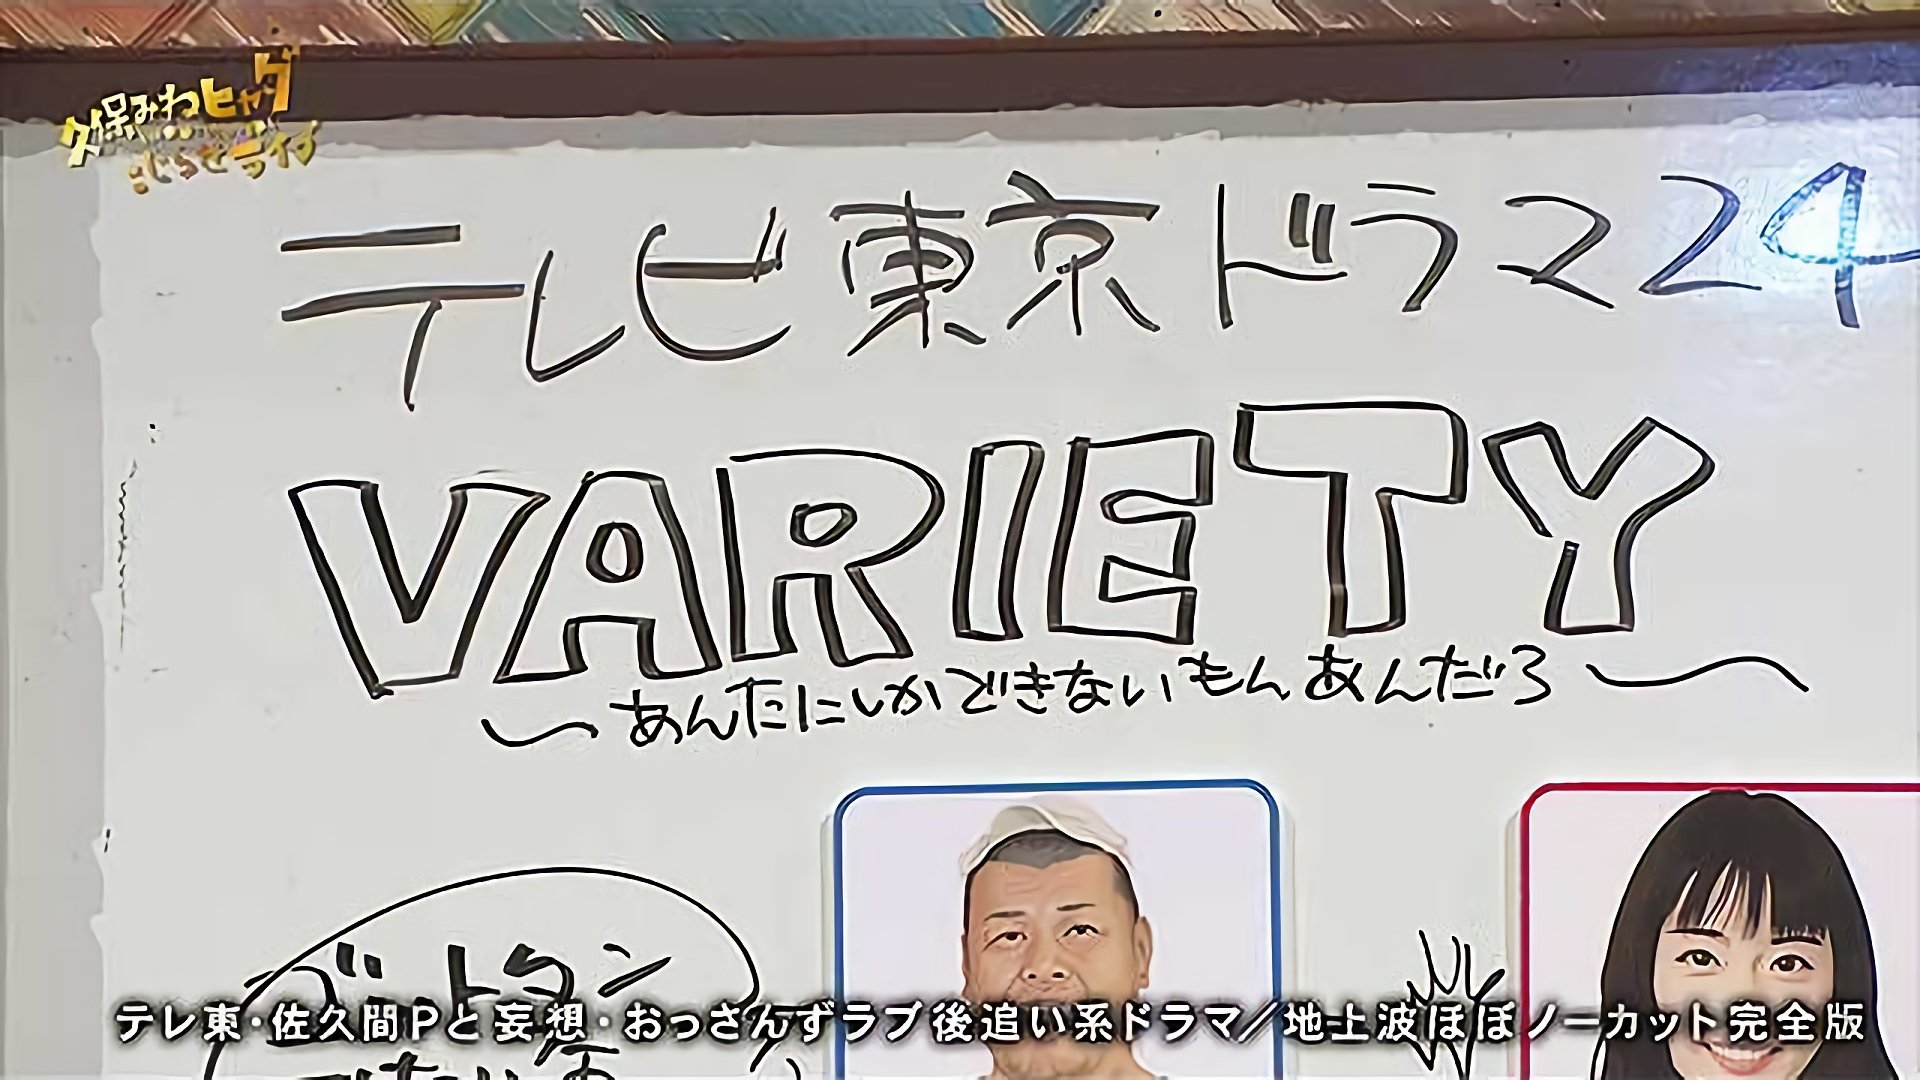 久保みねヒャダ
こじらせライブ
テレビ東京ドラマ24
VARIETY
〜あんたにしかできないもんあんだろ〜
ゴットタン
テレ東・佐久間Pと妄想・おっさんずラブ後追い系ドラマ／地上波ほぼノーカット完全版